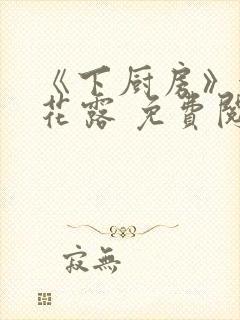 《下厨房》
花露 免費閱
寂無